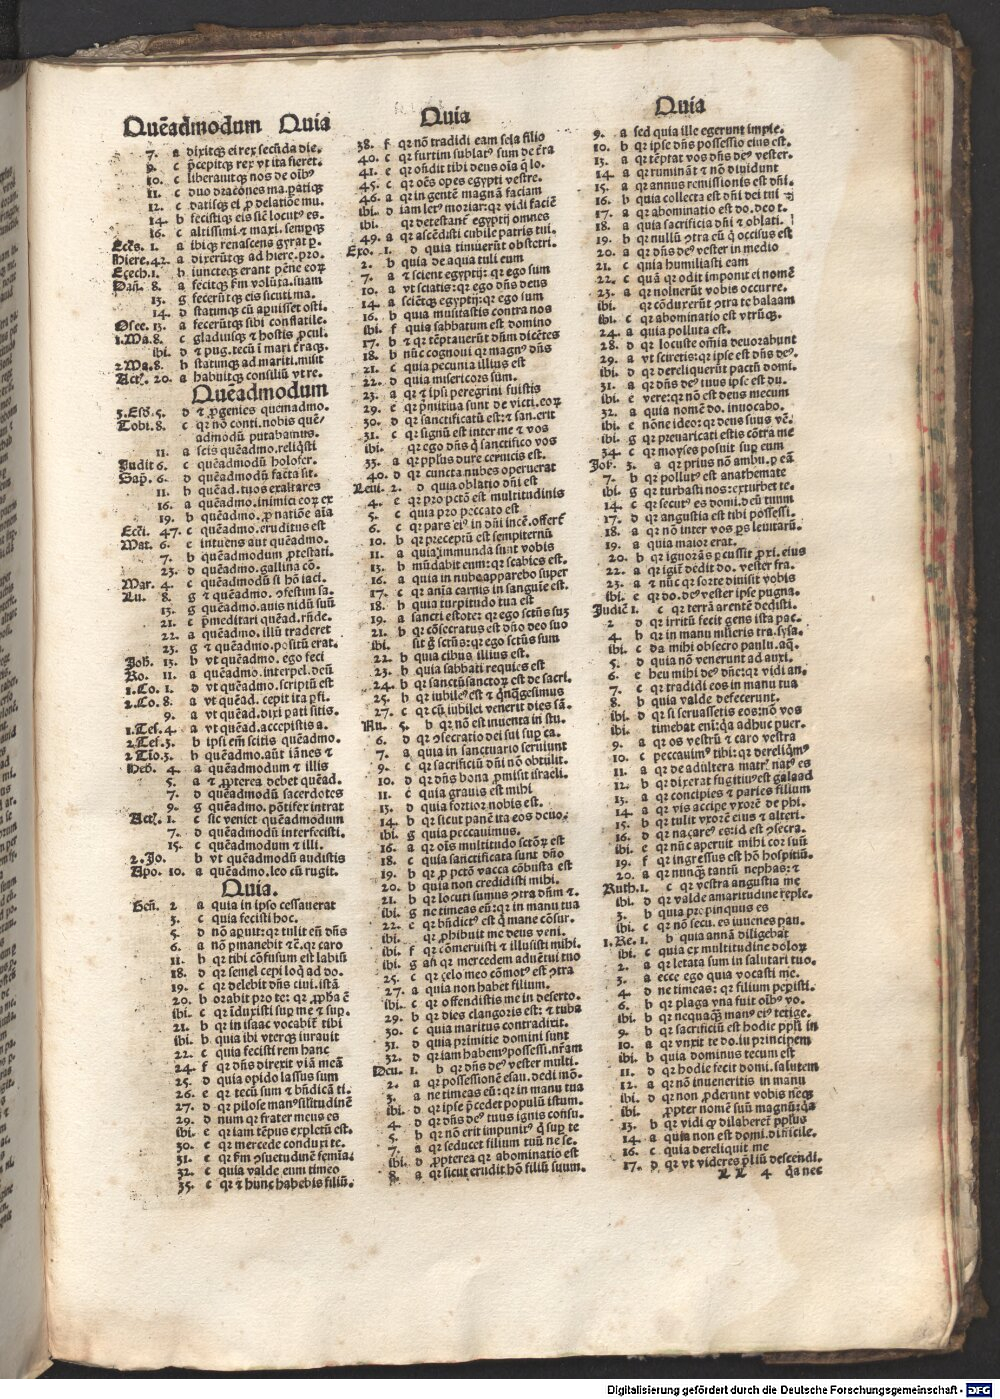 Quēadmodum Quia
7. a dixitqꝫ ei rex secūda die.
9. c p̄cepitqꝫ rex vt ita fieret.
10. c liberauitqꝫ nos de
11. c duo dracones ma. patiqꝫ
12. c datisqꝫ ei ꝓ delatiōe mu.
14. b fecistiqꝫ eis sic̄ locutꝰ es.
16. c altissimi ⁊ maxi. sempqꝫ
Eccs. 1. a ibiqꝫ renascens gyrat p.
Hiere. 42. a dixerūtqꝫ ad hiere. pro.
Ezech. 1. b iuncteqꝫ erant pēne
Dan̄. 8. a fecitqꝫ voluta. suam
13. g fecerūtqꝫ eis sicuti ma.
14. d statimqꝫ cū apuisset osti.
Osee. 13. a fecerūtqꝫ sibi conflatile.
1. Ma. 8. c gladiusqꝫ ⁊ hostis pcul.
ibi. d ⁊ pug. tecū ī mari
2 Ma. 8. b statimqꝫ ad mariti. misit
20. a habuitqꝫ consiliū vt re.
Quēadmodum
3. Esd. 5. d ⁊ ꝓgenies quemadmo.
Tobi. 8. c qꝛ nō conti. nobis quē⸗
admodū putabamus.
11. a seis quēadmo. reliq̄sti
Judit 6. c quēadmodū holofer.
Sap̄. 6. d quēadmodū facta sit.
11. b quēad. tuos exaltares
16. a quēadmo. inimici ex
19. b quēadmo. ꝓ natiōe aīa
Ecci. 47. c quēadmo. eruditus est
Mat. 6. c intuens aut quēadmo.
7. b quēadmodum ptestati.
23. d quēadmo. gallina cō.
Mar. 4. c quēadmodū si hō iaci.
Lu. 8. g ⁊ quēadmo. ꝯfestim sa.
13. g quēadmo. auis nidū suū
21. c p̄meditari quēad. rn̄de.
22. a quēadmo. illū traderet
23. g ⁊ quēadmo. positū erat.
Joh̄. 13. b vt quēadmo. ego feci
Ro. 11. a quēadmo. interpel. deū
1. Co. 1. d vt quēadmo. scriptū est
2. Co. 8. a vt quēad. cepit ita pfi.
9. a vt quēad. dixi pati sitis.
1. Tes. 4. a vt quēad. accepistis a.
2 Tes. 3. b ipsi em̄ scitis quēadmo.
2 Tio. 3. b quēadmo. aūt iānes ⁊
Heb. 4. a quēadmodum ⁊ illis
5. a ⁊ ꝓpterea debet quēad.
7. d quēadmodū sacerdotes
9. g quēadmo. pōtifex intrat
1. c sic veniet quēadmodum
7. d quēadmodū interfecisti.
15. c quēadmodum ⁊ illi.
2. Jo. b vt quēadmodū audistis
Apo. 10. a quēadmo. leo cū rugit.
Quia.
Gen̄. 2 a quia in ipso cessauerat
3. c quia fecisti hoc.
5. d nō aput: qꝛ tulit eū dn̄s
6. a nō pmanebit ⁊c̄. qꝛ caro
11. b qꝛ tibi cōfusum est labiū
18. d qꝛ semel cepi loq̄ ad do.
19. c qꝛ delebit dn̄s ciui. istā
20. b orabit pro te: qꝛ ꝓph̄a ē
ibi. c qꝛ īduxisti sup me ⁊ sup.
21. b qꝛ in isaac vocabit tibi
ibi. b quia ibi vterqꝫ iurauit
22. c quia fecisti rem hanc
24. f qꝛ dn̄s direxit viā meā
25. d quia opido lassus sum
26. e qꝛ tecū sum ⁊ bn̄dicā ti.
27. d qꝛ pilose manꝰ
29. d num qꝛ frater meus es
ibi. c qꝛ iam tēpus expletū est.
30. c qꝛ mercede conduxi te.
31. c qꝛ ꝯsuetudinē
32. c quia valde eum timeo
35. c qꝛ ⁊ hunc habebis filiū.
Quia
38. f qꝛ nō tradidi eam sela filio
40. c qꝛ furtim sublatꝰ sum de
41. e qꝛ on̄dit tibi deus oīa q̄ lo.
45. c qꝛ oēs opes egypti vestre.
46. a qꝛ in gentē magnā faciam
ibi. d iam letꝰ moriar: qꝛ vidi faciē
ibi. qꝛ detestant egyptij omnes
49. a qꝛ ascēdisti cubile patris tui.
Exo. 1. d quia timuerūt obstetri.
2. b quia de aqua tuli eum
7. a ⁊ scient egyptij: qꝛ ego sum
10. a vt sciatis: qꝛ ego dn̄s deus
14. a sciētqꝫ egyptij: qꝛ ego sum
16. b quia musitastis contra nos
ibi. f quia sabbatum est domino
17. b ⁊ qꝛ tēptauerūt dn̄m dicētes
18. b nūc cognoui qꝛ magnꝰ dn̄s
21. c quia pecunia illius est
22. d quia misericors sum.
23. a qꝛ ⁊ ipsi peregrini fuistis
29. c qꝛ p̄mitiua sunt de victi.
30. d qꝛ sanctificatū est: ⁊ san. erit
31. c qꝛ signū est inter me ⁊ vos
ibi. qꝛ ego dn̄s q̄ sanctifico vos
33. a qꝛ pplus dure ceruicis est.
40. d qꝛ cuncta nubes operuerat
Leui. 2. d quia oblatio dn̄i est
4. e qꝛ pro pctō est multitudinis
5. c quia pro peccato est
6. c qꝛ pars eiꝰ in dn̄i incē. offert
10. b qꝛ preceptū est sempiternū
11. a quia immunda sunt vobis
13. b mūdabit eum: qꝛ scabies est.
16. a quia in nube apparebo super
17. c qꝛ anīa carnis in sanguīe est.
18. b quia turpitudo tua est
19. a sancti estote: qꝛ ego sctūs suꝫ
21. b qꝛ cōsecratus est dn̄o deo suo
ibi. sit ḡ sctūs: qꝛ ego sctūs sum
22. b quia cibus illius est.
23. b quia sabbati requies est
24. b qꝛ sanctū sanctoꝝ est de sacri.
25. b qꝛ iubileꝰ est ⁊ q̄nq̄gesimus
27. c qꝛ cū iubilei venerit dies sā.
Nu. 5. b qꝛ nō est inuenta in stu.
6. d qꝛ ꝯsecratio dei sui sup ca.
7. a quia in sanctuario seruiunt
9. c qꝛ sacrificiū dn̄i nō obtulit.
10. d qꝛ dn̄s bona ꝓmisit israeli.
11. c quia grauis est mihi
13. d quia fortior nobis est.
14. b qꝛ sicut panē ita eos deuo.
ibi. g quia peccauimus.
16. a qꝛ oīs multitudo sctōꝝ est
18. c quia sanctificata sunt dn̄o
19. b qꝛ ꝓ pctō vacca cōbusta est
20. b quia non credidisti mihi.
21. b qꝛ locuti sumus ꝯtra dn̄m ⁊.
ibi. g ne timeas eū: qꝛ in manu tua
22. c qꝛ bn̄dictꝰ est q̄ mane cōsur.
ibi. qꝛ ꝓhibuit me deus veni.
ibi. f qꝛ cōmeruisti ⁊ illusisti mihi.
ibi. g an qꝛ mercedem aduētui tuo
25. c qꝛ zelo meo cōmotꝰ est ꝯtra
27. a quia non habet filium.
ibi. c qꝛ offendistis me in deserto.
29. b qꝛ dies clangoris est: ⁊ tuba
30. c quia maritus contradixit.
31. d quia primitie domini sunt
32. d qꝛ iam habemꝰ possessi. nr̄am
Deu. 1. b qꝛ dn̄s deꝰ vester multi.
2. a qꝛ possessionē esau. dedi mō.
3. a ne timeas eū: qꝛ in manu tua
ibi. d qꝛ ipse p̄cedet populū istum.
4. d qꝛ dn̄s deꝰ tuus ignis consu.
5. b qꝛ nō erit impunitꝰ q̄ sup te
7. a qꝛ seducet filium tuū ne se.
ibi. d ꝓpterea qꝛ abominatio est
8. a qꝛ sicut erudit hō filiū suum.
Quia
9. a sed quia ille egerunt imple.
10. b qꝛ ipse dn̄s possessio eius est.
13. a qꝛ tēptat vos dn̄s deꝰ vester.
14. a qꝛ rumināt ⁊ nō diuidunt
15. a qꝛ annus remissionis est dn̄i.
16. b quia collecta est dn̄i dei tui
17. a qꝛ abominatio est do. deo t.
18. a quia sacrificia dn̄i ⁊ oblati.
19. b qꝛ nullū ꝯtra eū q̄ occisus est
20. a qꝛ dn̄s deꝰ vester in medio
21. c quia humiliasti eam
22. c quā qꝛ odit imponit ei nomē
23. a qꝛ noluerūt vobis occurre.
ibi. qꝛ cōduxerūt ꝯtra te balaam
ibi. c qꝛ abominatio est vtrūqꝫ.
24. a quia polluta est.
28. d qꝛ locuste omīa deuorabunt
29. a vt sciretis: qꝛ ipse est dn̄s deꝰ.
ibi. d qꝛ dereliquerūt pactū domi.
31. a qꝛ dn̄s deꝰ tuus ipse est du.
ibi. e vere: qꝛ nō est deus mecum
32. a quia nomē do. inuocabo.
ibi. e nōne ideo: qꝛ deus suus vē.
ibi. g qꝛ preuaricati estis cōtra me
34. c qꝛ moyses posuit sup eum
Jos. 3. a qꝛ prius nō ambu. p eā
7. b qꝛ pollutꝰ est anathemate
ibi. g qꝛ turbasti nos: exturbet te.
14. c qꝛ secutꝰ es domi. deū tuum
17. d qꝛ angustia est tibi possessi.
18. a qꝛ nō inter vos ps leuitarū.
19. a quia maior erat.
20. b qꝛ ignorās pcussit ꝓxi. eius
22. a qꝛ igit dedit do. vester fra.
23. a ⁊ nūc qꝛ sorte diuisit vobis
ibi. c qꝛ do. deꝰ vester ipse pugna.
Judic̄ 1. c qꝛ terrā arentē dedisti.
2 d qꝛ irritū fecit gens ista pac.
4. b qꝛ in manu mulieris tra. sysa.
ibi. c da mihi obsecro paulu. aq̄.
5. d quia nō venerunt ad auxi.
6. e heu mihi deꝰ dn̄e: qꝛ vidi an.
7. c qꝛ tradidi eos in manu tua
8. b quia valde defecerunt.
ibi. d qꝛ si seruassetis eos: nō vos
ibi. timebat eni: q̄a adhuc puer.
9. a qꝛ os vestrū ⁊ caro vestra
10. c peccauimꝰ tibi: qꝛ dereliq̄mꝰ
11. a qꝛ de adultera matr. natꝰ es
12. b qꝛ dixerat fugitiuꝰ est galaad
13. a qꝛ concipies ⁊ paries filium
14. a qꝛ vis accipe vxorē de phi.
15. b qꝛ tulit vxorē eius ⁊ alteri.
17. d qꝛ nazareꝰ es: id est ꝯsecra.
ibi. e qꝛ nūc aperuit mihi cor suū
19. f qꝛ ingressus est hō hospitiū.
20. a qꝛ nunqꝫ tantū nephas: ⁊
Ruth. 1. c qꝛ vestra angustia me
ibi. d qꝛ valde amaritudine reple.
3. b quia propinquus es
ibi. c qꝛ nō secu. es iuuenes pau.
1. Re. 1. b quia annā diligebat
ibi. c quia ex multitudine doloꝝ
2. a qꝛ letata sum in salutari tuo.
3. a ecce ego quia vocasti me.
4. d ne timeas: qꝛ filium pepisti.
6. b qꝛ plaga vna fuit oībꝰ vo.
ibi. b qꝛ nequaqꝫ manꝰ eiꝰ tetige.
9. b qꝛ sacrificiū est hodie ppli in
10. a qꝛ vnxit te do. iu principem
ibi. b quia dominus tecum est
11. d qꝛ hodie fecit domi. salutem
12. a qꝛ nō inueneritis in manu
ibi. d qꝛ non ꝓderunt vobis
ibi. ꝓpter nomē suū magnū: q̄a
13. b qꝛ vidi ꝙ dilaberet pplus
14. a quia non est domi. difficile.
16. c quia dereliquit me
17. qꝛ vt videres p̄liū descendi.
LL 4 q̄a nec
Digitalisierung gefördert durch die Deutsche Forschungsgemeinschaft - DFG